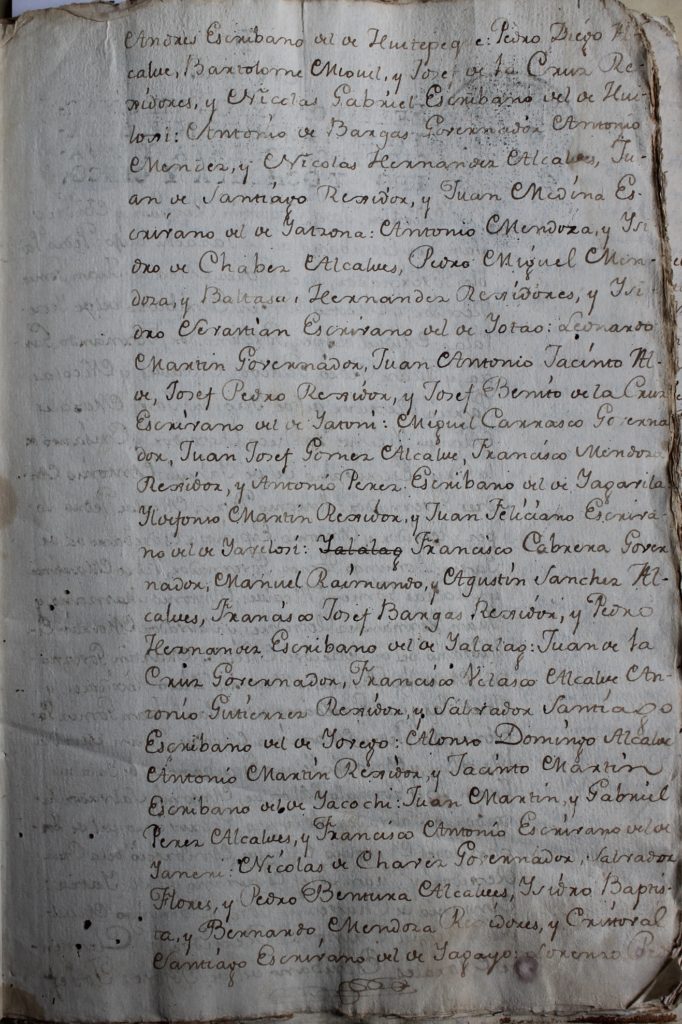 Andres Escribano del de Huitepeque: Pedro Diego Al-
calde, Bartolome Miguel, y Josef de la Cruz Re-
xidores, y Nicolas Gabriel Escribano del de Hui-
losi: Antonio de Bargas Governador Antonio
Mendez, y Nicolas Hernandez Alcaldes, Ju-
an de Santiago Rexidor, y Juan Medina Es-
crivano del de Yatzona: Antonio Mendoza, y Ysi-
dro de Chabez Alcaldes, Pedro Miguel Men-
doza, y Baltasar Hernandez Rexidores, y Ysi-
dro Sevastian Escrivano del de Yotao: Leonardo
Martin Governador, Juan Antonio Jacinto Al-
de, Josef Pedro Rexidor, y Josef Benito de la Cruz
Escrivano del de Yatoni: Miguel Carrasco Governa
dor, Juan Josef Gomez Alcalde, Francisco Mendoza
Rexidor, y Antonio Perez Escribano del de Yagavila
Yldefonso Martin Rexidor, y Juan Feliciano Escriva-
no del de Yavilosi: Yalalag Francisco Cabrera Gover
nador, Manuel Raimundo, y Agustin Sanchez Al-
caldes, Francisco Josef Bargas Rexidor, y Pedro
Hernandez Escribano del de Yalalag: Juan de la
Cruz Governador, Francisco Velasco Alcalde An-
tonio Gutierrez Rexidor, y Salvador Santiago
Escribano del de Yovego: Alonso Domingo Alcalde
Antonio Martin Rexidor, y Jacinto Martin
Escribano del de Yacochi: Juan Martin, y Gabriel
Perez Alcaldes, y Francisco Antonio Escrivano del de
Yaneri: Nicolas de Chavez Governador, Salvador
Flores, y Pedro Bentura Alcaldes, Ysidro Baptis-
ta, y Bernardo Mendoza Rexidores, y Cristoval
Santiago Escrivano del de Yagayo: Lorenzo